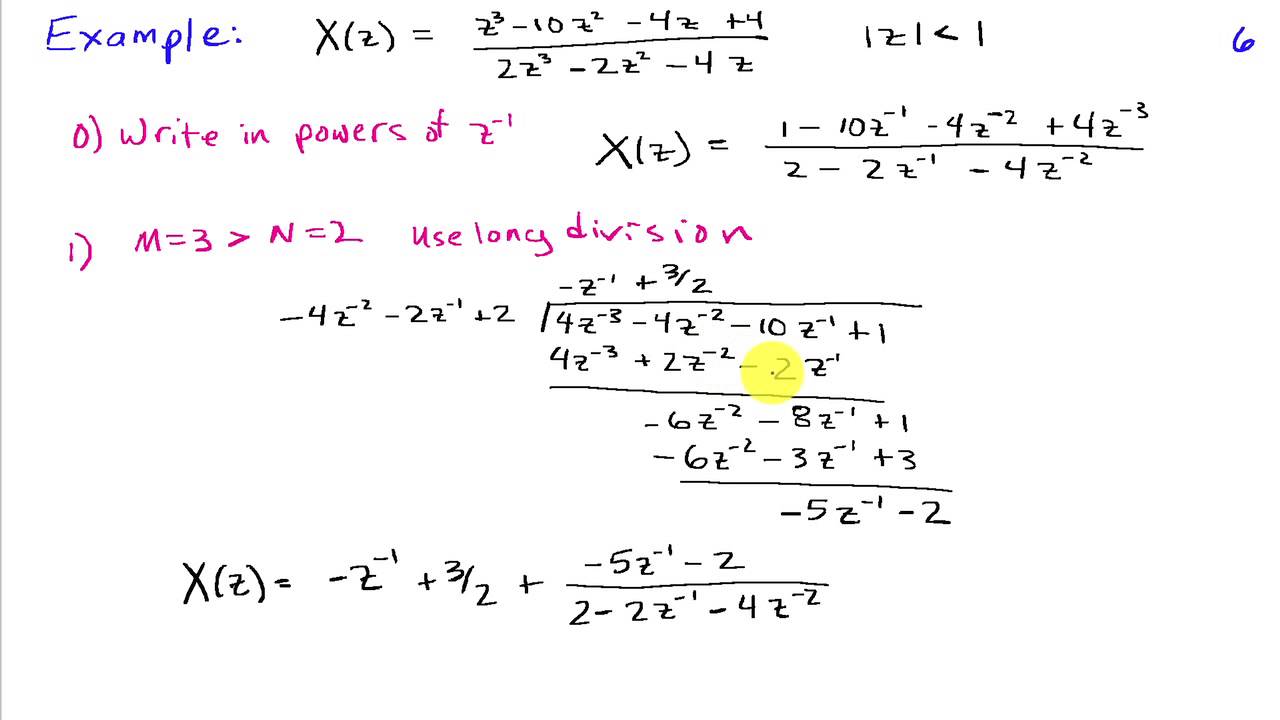 Example: X(z) = (z³ - 10z² - 4z + 4)/(2z³ - 2z² - 4z) |z| < 1 6
0) Write in powers of z⁻¹ X(z) = (1 - 10z⁻¹ - 4z⁻² + 4z⁻³)/(2 - 2z⁻¹ - 4z⁻²)
1) M=3 > N=2 use long division
-z⁻¹ + 3/2
-4z⁻² - 2z⁻¹ + 2 √4z⁻³ - 4z⁻² - 10z⁻¹ + 1
4z⁻³ + 2z⁻² - 2z⁻¹
-6z⁻² - 8z⁻¹ + 1
-6z⁻² - 3z⁻¹ + 3
-5z⁻¹ - 2
X(z) = -z⁻¹ + 3/2 + (-5z⁻¹ - 2)/(2 - 2z⁻¹ - 4z⁻²)